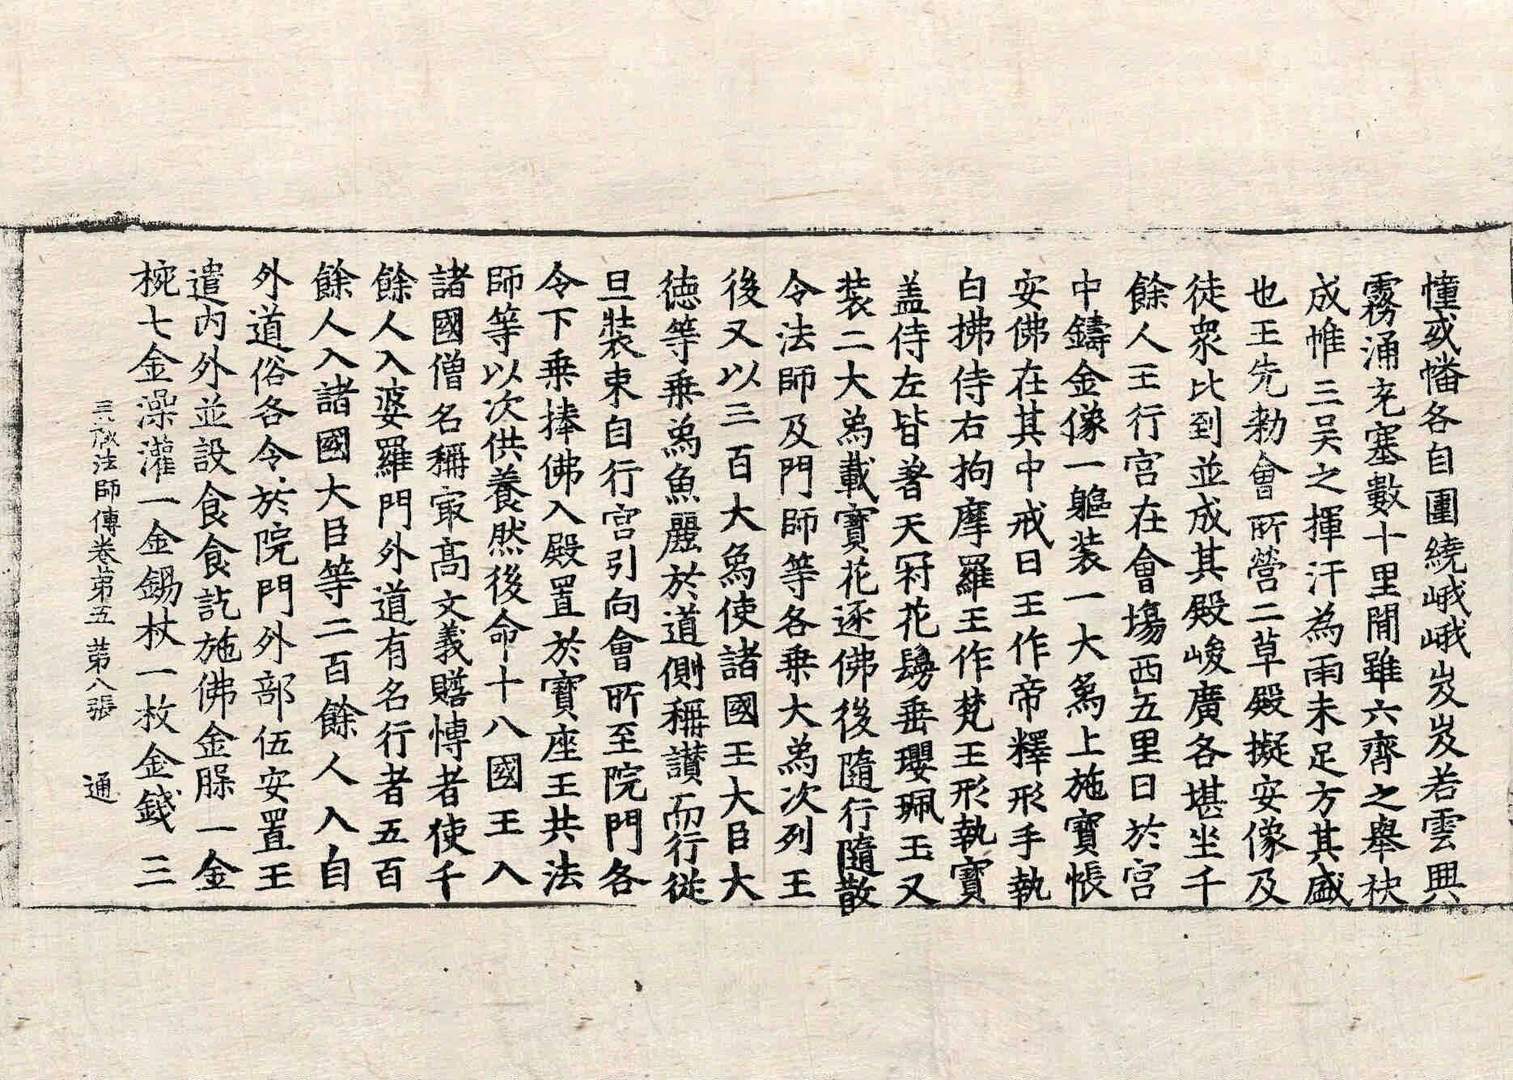 幢或幡各自圍繞峨峨岌岌若雲興
霧涌充塞數十里間雖六齊之舉袂
成帷三吳之揮汗為雨未足方其盛
也王先勑會所營二草殿擬安像及
徒衆比到並成其殿峻廣各堪坐千
餘人王行宫在會場西五里日於宫
中鑄金像一軀裝一大象上施寶帳
安佛在其中戒日王作帝釋形手執
白拂侍右拘摩羅王作梵王形執寶
盖侍左皆著天冠花鬘垂瓔珮玉又
裝二大象載寶花逐佛後隨行隨散
令法師及門師等各乗大象次列王
後又以三百大象使諸國王大臣大
徳等乗象魚麗於道側稱讃而行從
旦裝束自行宫引向會所至院門各
令下乗捧佛入殿置於寶座王共法
師等以次供養然後命十八國王入
諸國僧名稱㝡髙文義贍愽者使千
餘人入婆羅門外道有名行者五百
餘人入諸國大臣等二百餘人入自
外道俗各令於院門外部伍安置王
遣内外並設食食訖施佛金槃一金
椀七金澡灌一金錫杖一枚金錢三
三藏法師傳卷第五 第八張 通